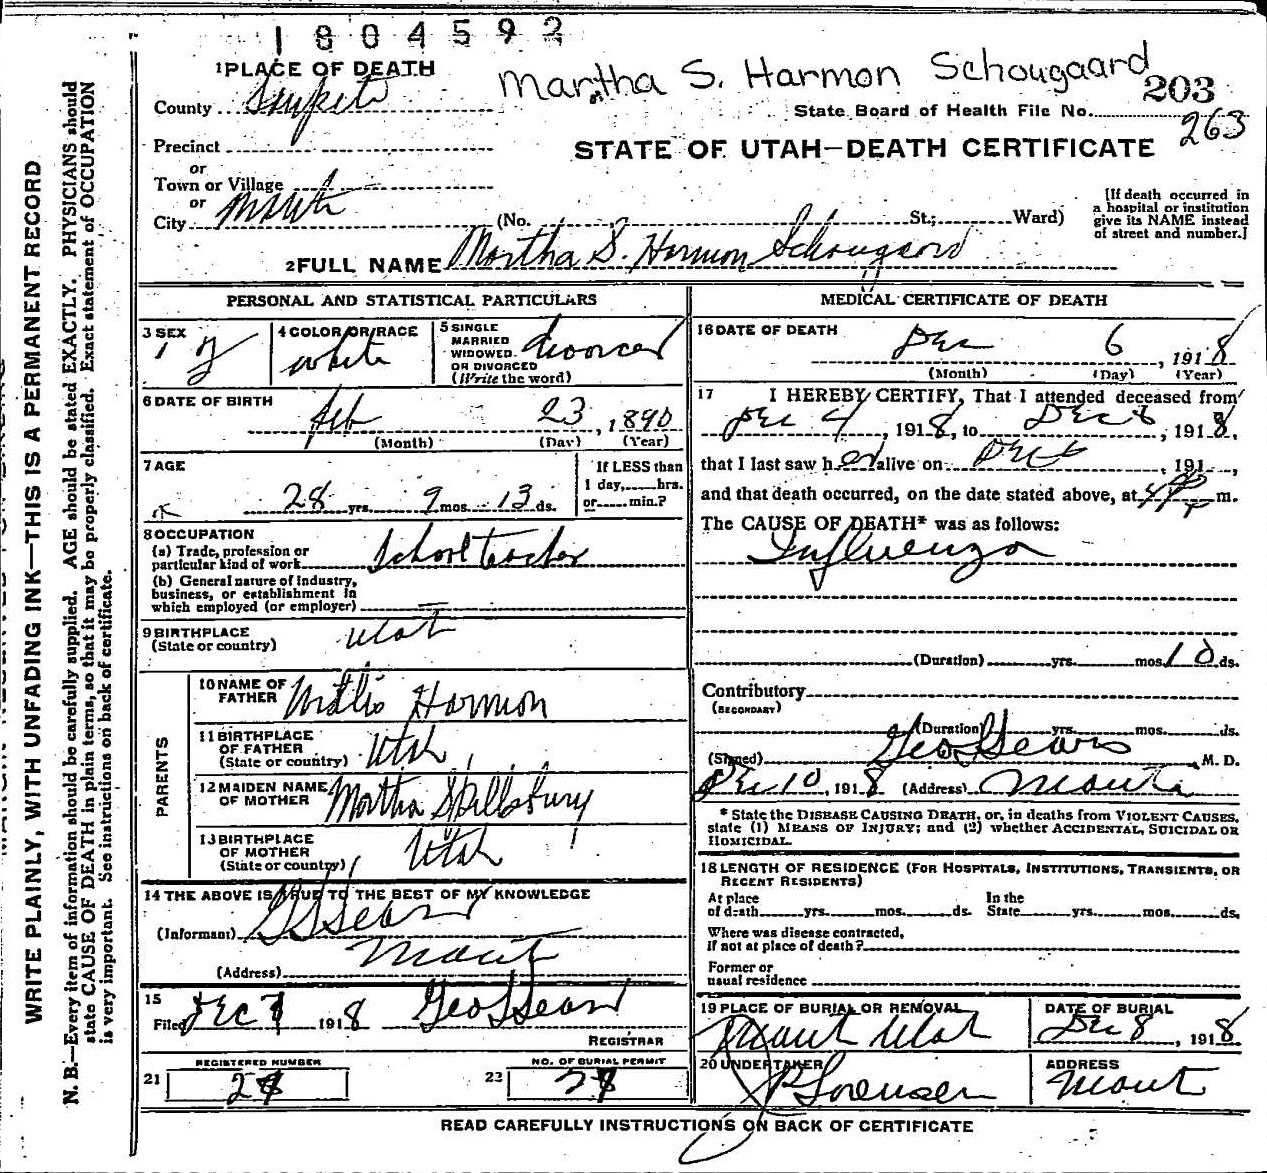 1804592
Martha S. Harmon Schougaard
1 PLACE OF DEATH
203
County
State Board of Health File No.
263
Precinct
STATE OF UTAH—DEATH CERTIFICATE
or
Town or Village
or
City
(No. St.; Ward)
[If death occurred in
a hospital or institution
give its NAME instead
of street and number.]
2 FULL NAME Martha S. Harmon Schougaard
PERSONAL AND STATISTICAL PARTICULARS
3 SEX F
4 COLOR OR RACE white
5 SINGLE
MARRIED
WIDOWED.
OR DIVORCED
(Write the word)
divorced
6 DATE OF BIRTH
Feb 23, 1890
(Month) (Day) (Year)
7 AGE
28 yrs. 9 mos. 13 ds.
If LESS than
1 day, hrs.
or min.?
8 OCCUPATION
(a) Trade, profession or
particular kind of work School teacher
(b) General nature of industry,
business, or establishment in
which employed (or employer)
9 BIRTHPLACE
(State or country)
Utah
PARENTS
10 NAME OF
FATHER
Harmon
11 BIRTHPLACE
OF FATHER
(State or country) Utah
12 MAIDEN NAME
OF MOTHER Martha
13 BIRTHPLACE
OF MOTHER
(State or country) Utah
14 THE ABOVE IS TRUE TO THE BEST OF MY KNOWLEDGE
(Informant) G S Sears
(Address)
15
Filed Dec 1918 Geo S Sears
REGISTRAR
REGISTERED NUMBER
21
NO. OF BURIAL PERMIT
22
MEDICAL CERTIFICATE OF DEATH
16 DATE OF DEATH
Dec 6, 1918
(Month) (Day) (Year)
17 I HEREBY CERTIFY, That I attended deceased from
Dec 4, 1918, to Dec , 1918,
that I last saw her alive on Dec 6, 191 ,
and that death occurred, on the date stated above, at m.
The CAUSE OF DEATH* was as follows:
Influenza
(Duration) yrs. mos. 10 ds.
Contributory
(SECONDARY)
(Duration) yrs. mos. ds.
(Signed) Geo S Sears M. D.
Dec 10, 1918 (Address)
* State the DISEASE CAUSING DEATH, or, in deaths from VIOLENT CAUSES,
state (1) MEANS OF INJURY; and (2) whether ACCIDENTAL, SUICIDAL OR
HOMICIDAL.
18 LENGTH OF RESIDENCE (FOR HOSPITALS, INSTITUTIONS, TRANSIENTS, OR
RECENT RESIDENTS)
At place In the
of death yrs. mos. ds. State yrs. mos. ds.
Where was disease contracted,
if not at place of death?
Former or
usual residence
19 PLACE OF BURIAL OR REMOVAL
Utah
DATE OF BURIAL
Dec 8, 1918
20 UNDERTAKER
Sorensen
ADDRESS
READ CAREFULLY INSTRUCTIONS ON BACK OF CERTIFICATE
WRITE PLAINLY, WITH UNFADING INK—THIS IS A PERMANENT RECORD
N. B.—Every item of information should be carefully supplied. AGE should be stated EXACTLY. PHYSICIANS should
state CAUSE OF DEATH in plain terms, so that it may be properly classified. Exact statement of OCCUPATION
is very important. See instructions on back of certificate.